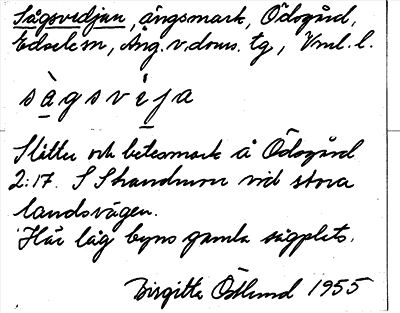 Sågsvidjan, ängsmark, Ödsgård,
Edsele sn, Ång. v. doms. tg, Vnl. l.
sàgsvi̱ja
Slåtter och betesmark å Ödsgård
2:17. S Strandmon vid stora
landsvägen.
Här låg byns gamla sågplats.
Birgitta Östlund 1955